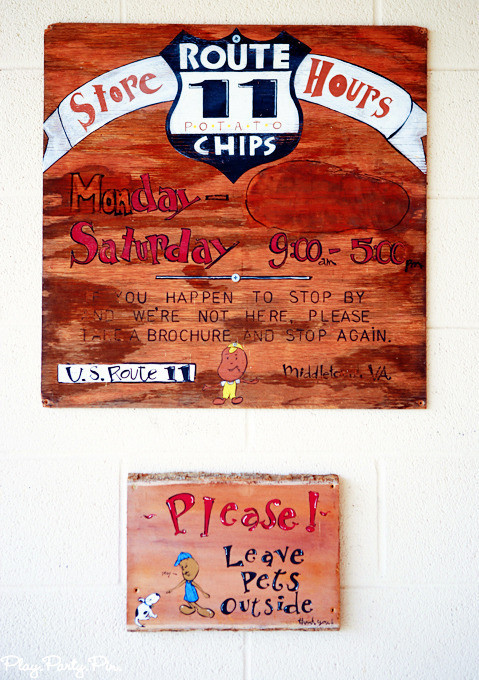 Store
ROUTE
11
POTATO
CHIPS
Hours
Monday -
Saturday 9:00 am - 5:00 pm
YOU HAPPEN TO STOP BY
AND WE'RE NOT HERE, PLEASE
TAKE A BROCHURE AND STOP AGAIN.
U.S. Route 11
Middletown, VA
~ Please! ~
Leave
Pets
Outside
thank you!
Play.Party.Pin.